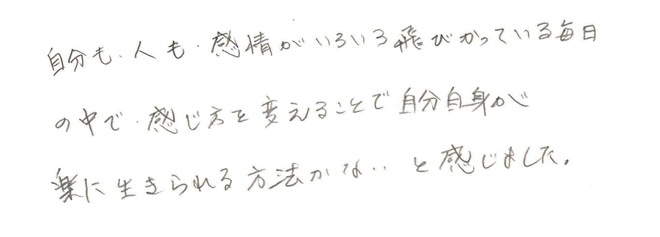 自分も、人も、感情がいろいろ飛びかっている毎日
の中で、感じ方を変えることで自分自身が
楽に生きられる方法かな‥と感じました。